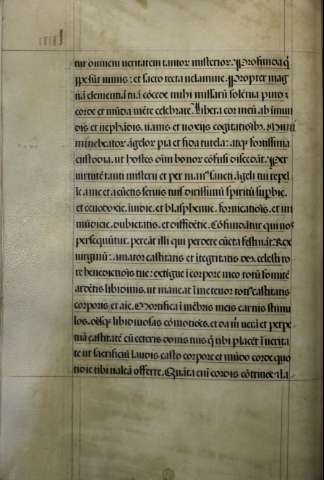 tur omnem veritatem tantor misterior. Profunda q̃
ppe sūt nimis: et sacro tecta velamine. Propter mag
nā clementiā tuā cōcede mihi missarū solēnia puro
corde et mūda mēte celebrare. Libera cor meū ab īmun
dis et nephādis, vanis et noxijs cogitatioībꝫ. Muni
me beator āgelor pia et fida tutela: atqꝫ fortissima
custodia. ut hostes oīm bonor cōfusi discedāt. Per
virtutē tanti misterij et per man̄ sancti āgeli tui repel
le a me et a cūctis servis tuis durissimū spiritū supbie,
et cenodoxie, invidie, et blasphemie, fornicatiōis, et im
mūdicie, dubietatis, et diffidētie. Cōfundātur qui nos
persequūtur. pereāt illi qui perdere cūcta festināt. Rex
virginū: amator castitatis et ītegritatis. des celesti ro
re benedictiōis tue: extigue ī corpore meo totū fomitē
ardētis libidinis. ut maneat ī me tenor toti9 castitatis
corporis et aīe. Mortifica ī mēbris meis carnis stimu
los, oēsqꝫ libidinosas cōmotiōes. et da m̄ verā et perpe
tuā castitatē cū ceteris donis tuis q̄ tibi placēt ī verita
te ut sacrificiū laudis casto corpore et mūdo corde quo
tidie tibi valeā offerre. Quāta eni cordis cōtritiōe et la